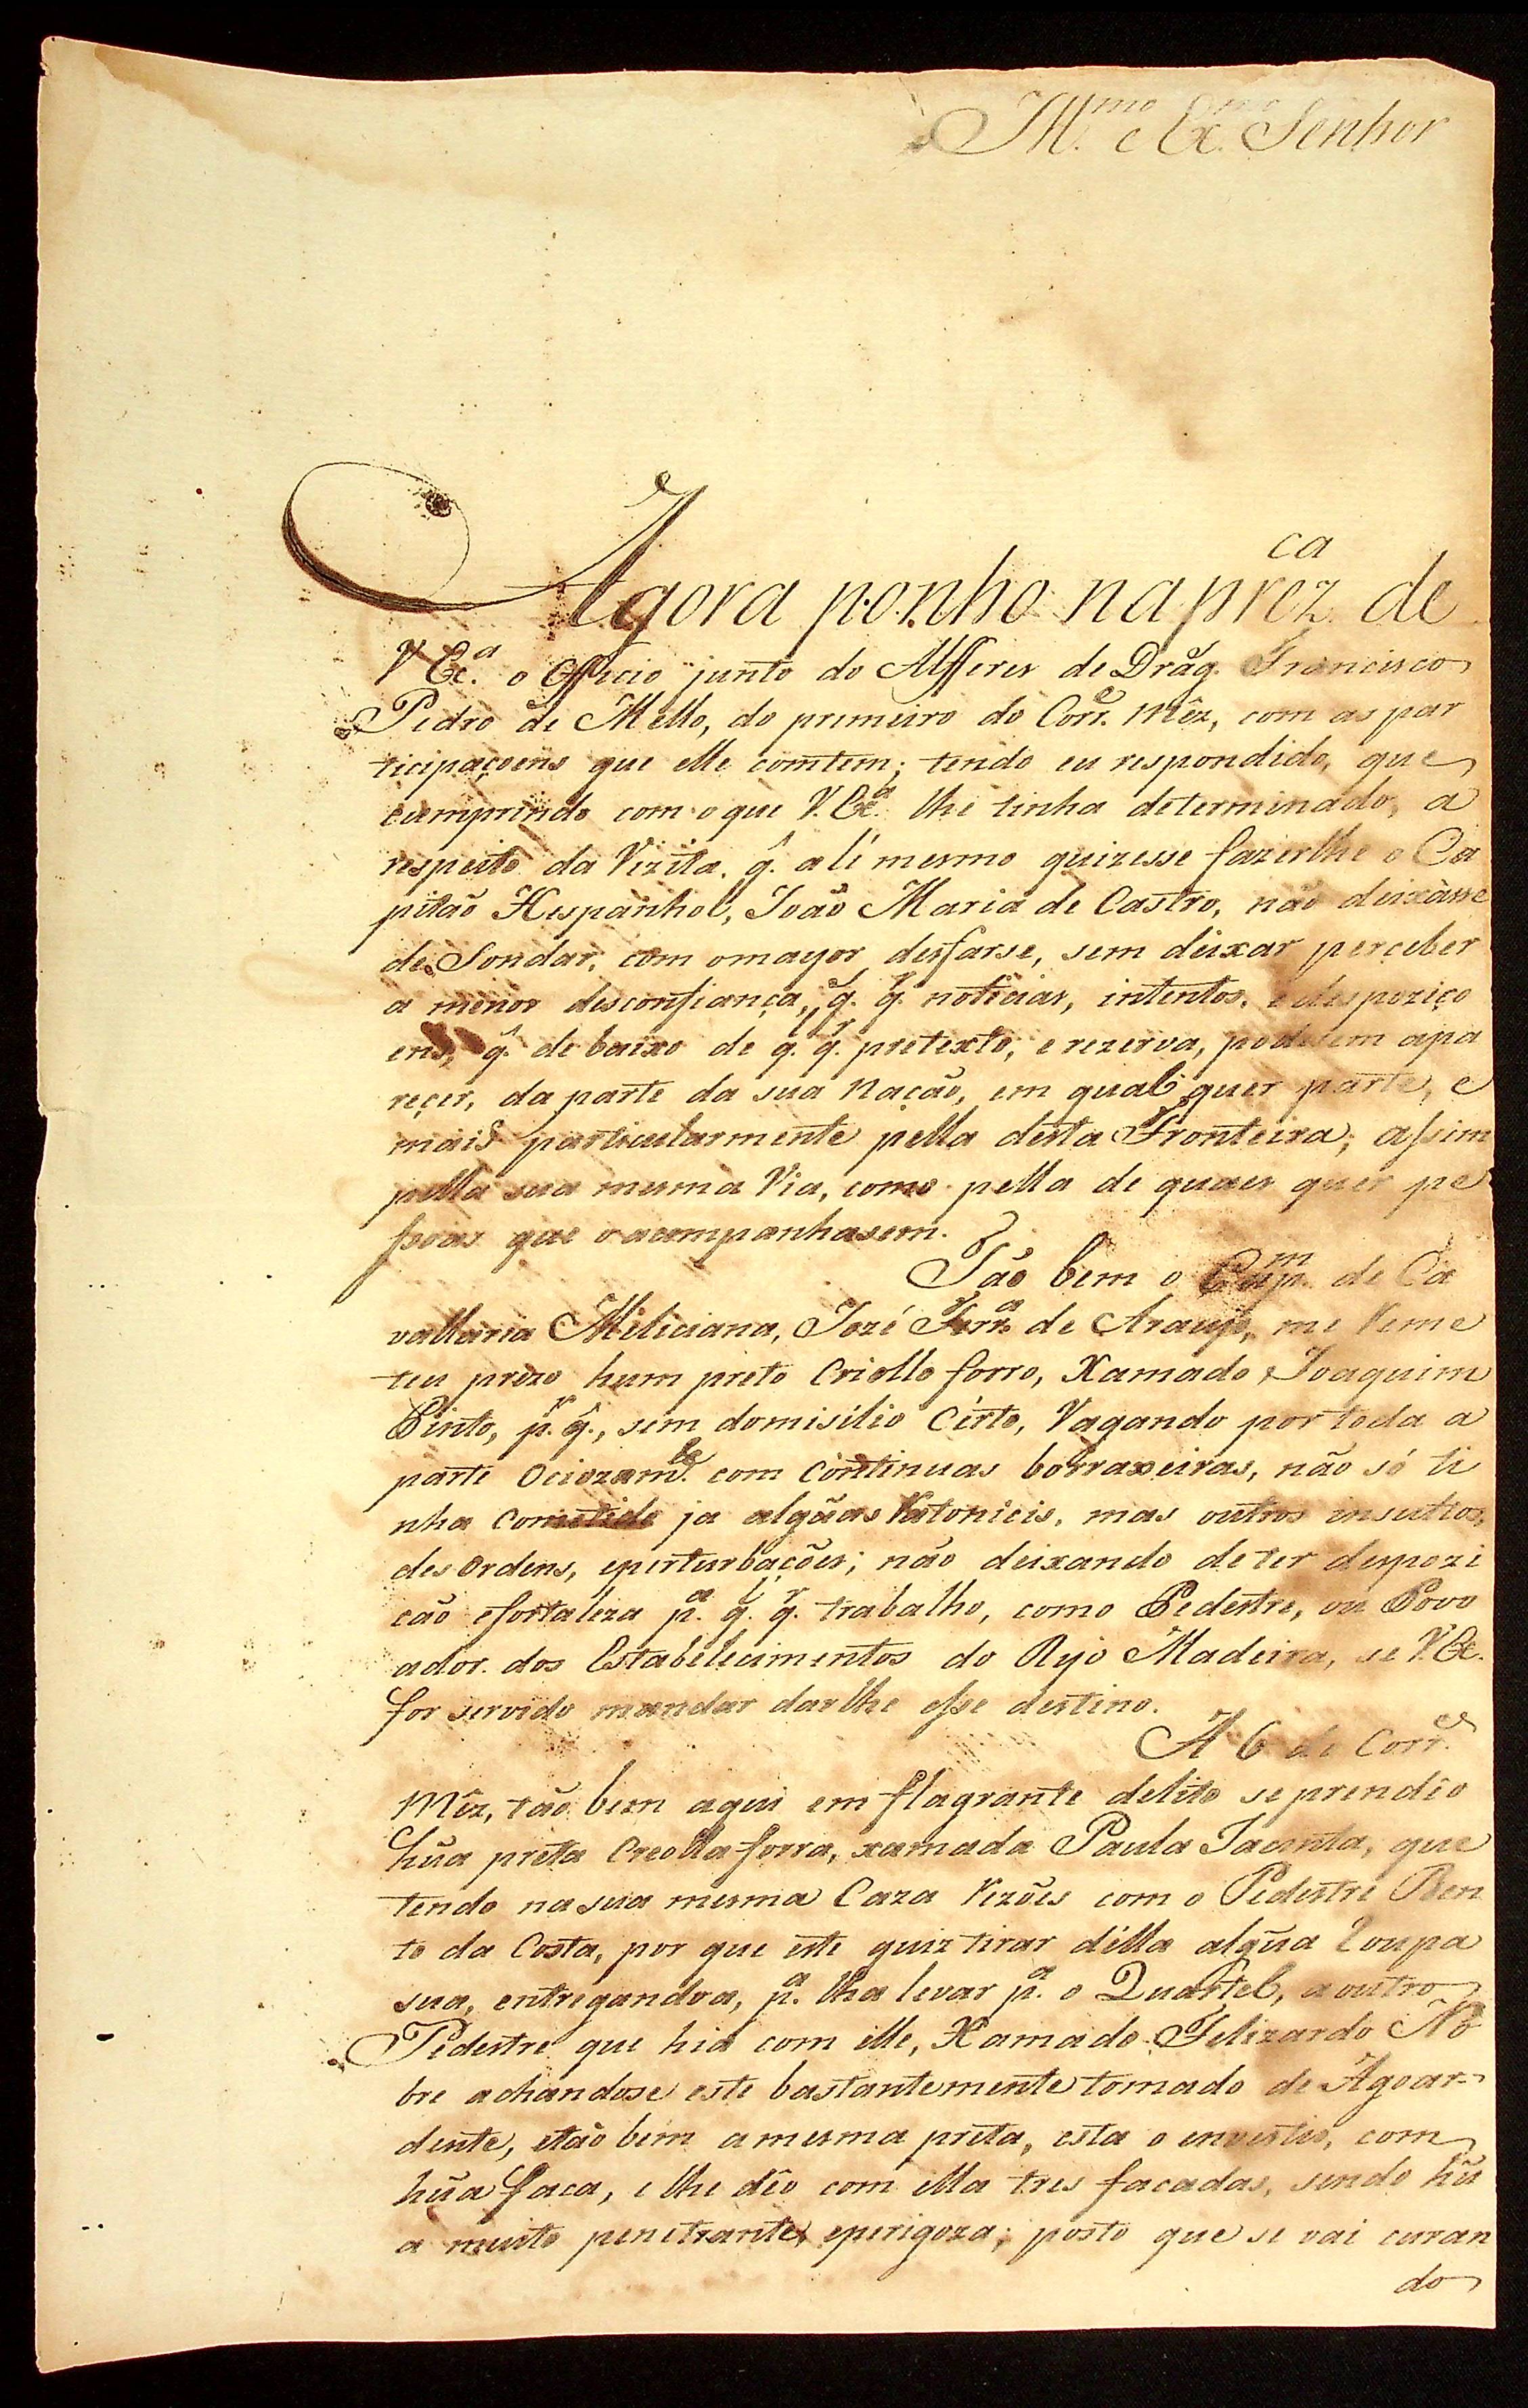 Ill.mo e Ex.mo Senhor
Agora ponho na prez.ca de
V Ex.a o Officio junto do Alferes de Drag. Francisco
Pedro de Mello, do primeiro do Corr.e Mêz, com as par
ticipaçoens que elle comtem; tendo eu respondido, que
cumprindo com o que V. Ex.a lhe tinha determinado, a
respeito da Vizita, q̂. alí mesmo quizesse fazerlhe o Ca
pitão Hespanhol, João Maria de Castro, não deixàsse
de Sondar, com omayor desfarse, sem deixar perçeber
a menor desconfiança, q.l q.r noticias, intentos, e despoziço
ens, q̂. de baixo de q.l q.r pretexto, e rezerva, podesem apa
reçer, da parte da sua Nação, em qual quer parte, e
mais particularmente pella desta Fronteira; assim
pella sua mesma Via, como pella de quaes quer pe
ssoas que o acompanhasem.
Tão bem o Cap.m de Ca
vallaria Miliciana, Jozé Ferr.a de Araujo, me Reme
teu prezo hum preto Criollo forro, Xamado Joaquim
Pinto, p.r q̂., sem domisilio Cérto, Vagando por toda a
parte Ociozam.te com Continuas borraxeiras, não só ti
nha Cometido ja algũas Ratonicis, mas outros insultos,
des Ordens, eperturbações; não deixando de ter despozi
cão efortaleza p.a q.l q.r trabalho, como Pedestre, ou Povo
ador dos Estabelecimentos do Ryo Madeira, se V. Ex.
for servido mandar darlhe esse destino.
A 6 do Corr.e
Mêz, tão bem aqui em flagrante delito se prendêo
hũa preta Creolla forra, xamada Paula Jacinta, que
tendo na sua mesma Caza Rezões com o Pedestre Ben
to da Costa, por que este quiz tirar délla algũa Roupa
sua, entregandoa, p.a lha levar p.a o Quartel, a outro
Pedestre que hia com elle, Xamado Felizardo No
bre achandose este bastantemente tomado de Agoar-
dente, etão bem amesma preta, esta o envestio, com
hũa faca, e lhe dêo com ella tres facadas, sendo hũ
a muito penetrante, eperigoza; posto que se vai curan
do